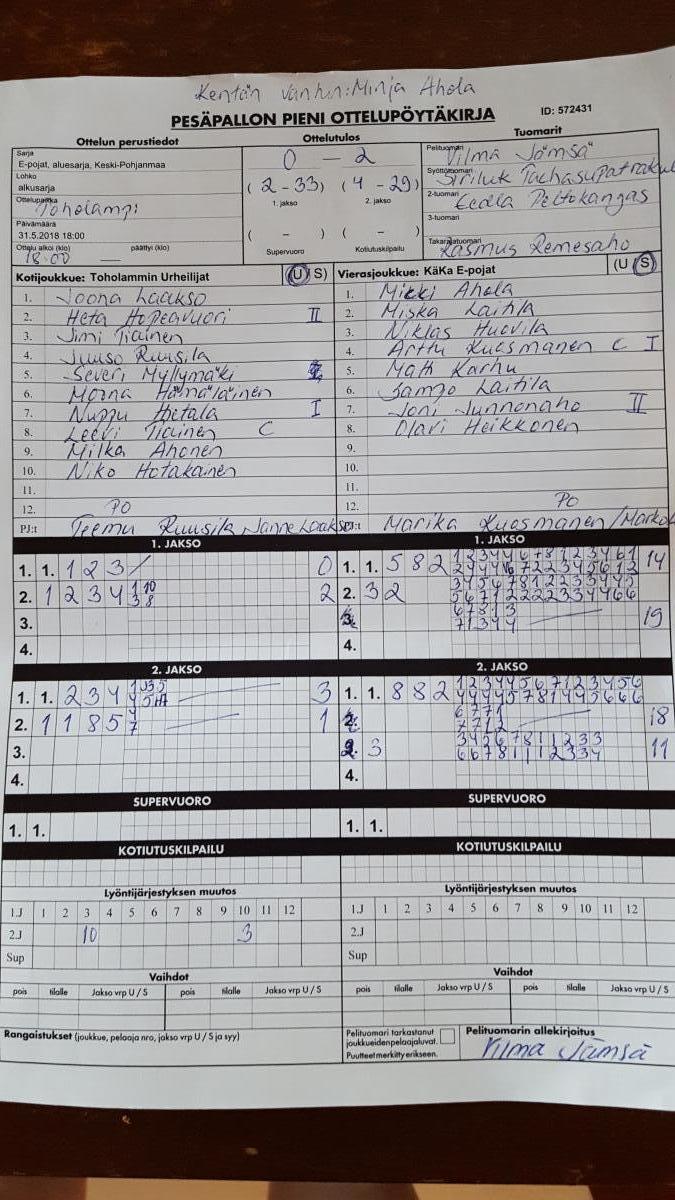 Kentän vanhin: Minja Ahola
PESÄPALLON PIENI OTTELUPÖYTÄKIRJA
ID: 572431
Ottelun perustiedot
Ottelutulos
Tuomarit
Sarja
E-pojat, aluesarja, Keski-Pohjanmaa
Lohko
alkusarja
Ottelupaikka
Toholampi
Päivämäärä
31.5.2018 18:00
Ottelu alkoi (klo) päättyi (klo)
18:00 —
0 – 2
(2 - 33) (4 - 29)
1. jakso 2. jakso
( - ) ( - )
Supervuoro Kotiutuskilpailu
Pelituomari
Vilma Jämsä
Syöttötuomari
2-tuomari
Peltokangas
3-tuomari
Takarajatuomari
Rasmus Remesaho
Kotijoukkue: Toholammin Urheilijat (U S)
1. Joona Laakso
2. Heta Hopeavuori II
3. Jimi Tiainen
4. Juuso Ruusila
5. Severi Myllymäki
6. Hämäläinen
7. Nuppu Hietala I
8. Leevi Tiainen C
9. Milka Ahonen
10. Niko Hotakainen
11.
12. PO
PJ:t Teemu Ruusila Janne Laakso
Vierasjoukkue: KäKa E-pojat (U S)
1. Mikki Ahola
2. Miska Laitila
3. Niklas Huovila
4. Arttu Kuosmanen C I
5. Matt Karhu
6. Sampo Laitila
7. Joni Junnonaho II
8. Olavi Heikkonen
9.
10.
11.
12. PO
PJ:t Marika Kuosmanen/Marko
1. JAKSO
1. 1. 1 2 3 / 0
2. 1 2 3 4 2
3.
4.
1. JAKSO
1. 1. 5 8 2 14
2. 3 2
19
4.
2. JAKSO
1. 1. 2 3 4 3
2. 1 1 8 5 1
3.
4.
2. JAKSO
1. 1. 8 8 2
18
3 11
4.
SUPERVUORO
1. 1.
SUPERVUORO
1. 1.
KOTIUTUSKILPAILU
KOTIUTUSKILPAILU
Lyöntijärjestyksen muutos
1.J 1 2 3 4 5 6 7 8 9 10 11 12
2.J 10 3
Sup
Lyöntijärjestyksen muutos
1.J 1 2 3 4 5 6 7 8 9 10 11 12
2.J
Sup
Vaihdot
pois tilalle Jakso vrp U / S pois tilalle Jakso vrp U / S
Vaihdot
pois tilalle Jakso vrp U / S pois tilalle Jakso vrp U / S
Rangaistukset (joukkue, pelaaja nro, jakso vrp U / S ja syy)
Pelituomari tarkastanut
joukkueidenpelaajaluvat.
Puutteet merkitty erikseen.
Pelituomarin allekirjoitus
Vilma Jämsä